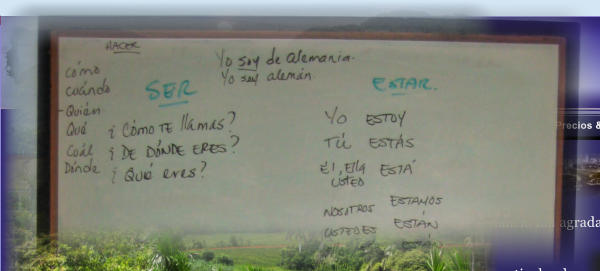 HACER
Yo soy de alemania.
Yo soy alemán.
Cómo
Cuándo
Quién
Qué
Cuál
Dónde
SER
¿ Cómo TE llamas?
¿ DE DÓNDE ERES?
¿ Qué eres?
ESTAR.
Yo ESTOY
TÚ ESTÁS
Él, Ella ESTÁ
USTED
NOSOTROS ESTAMOS
USTEDES ESTÁN
Precios &
agrada